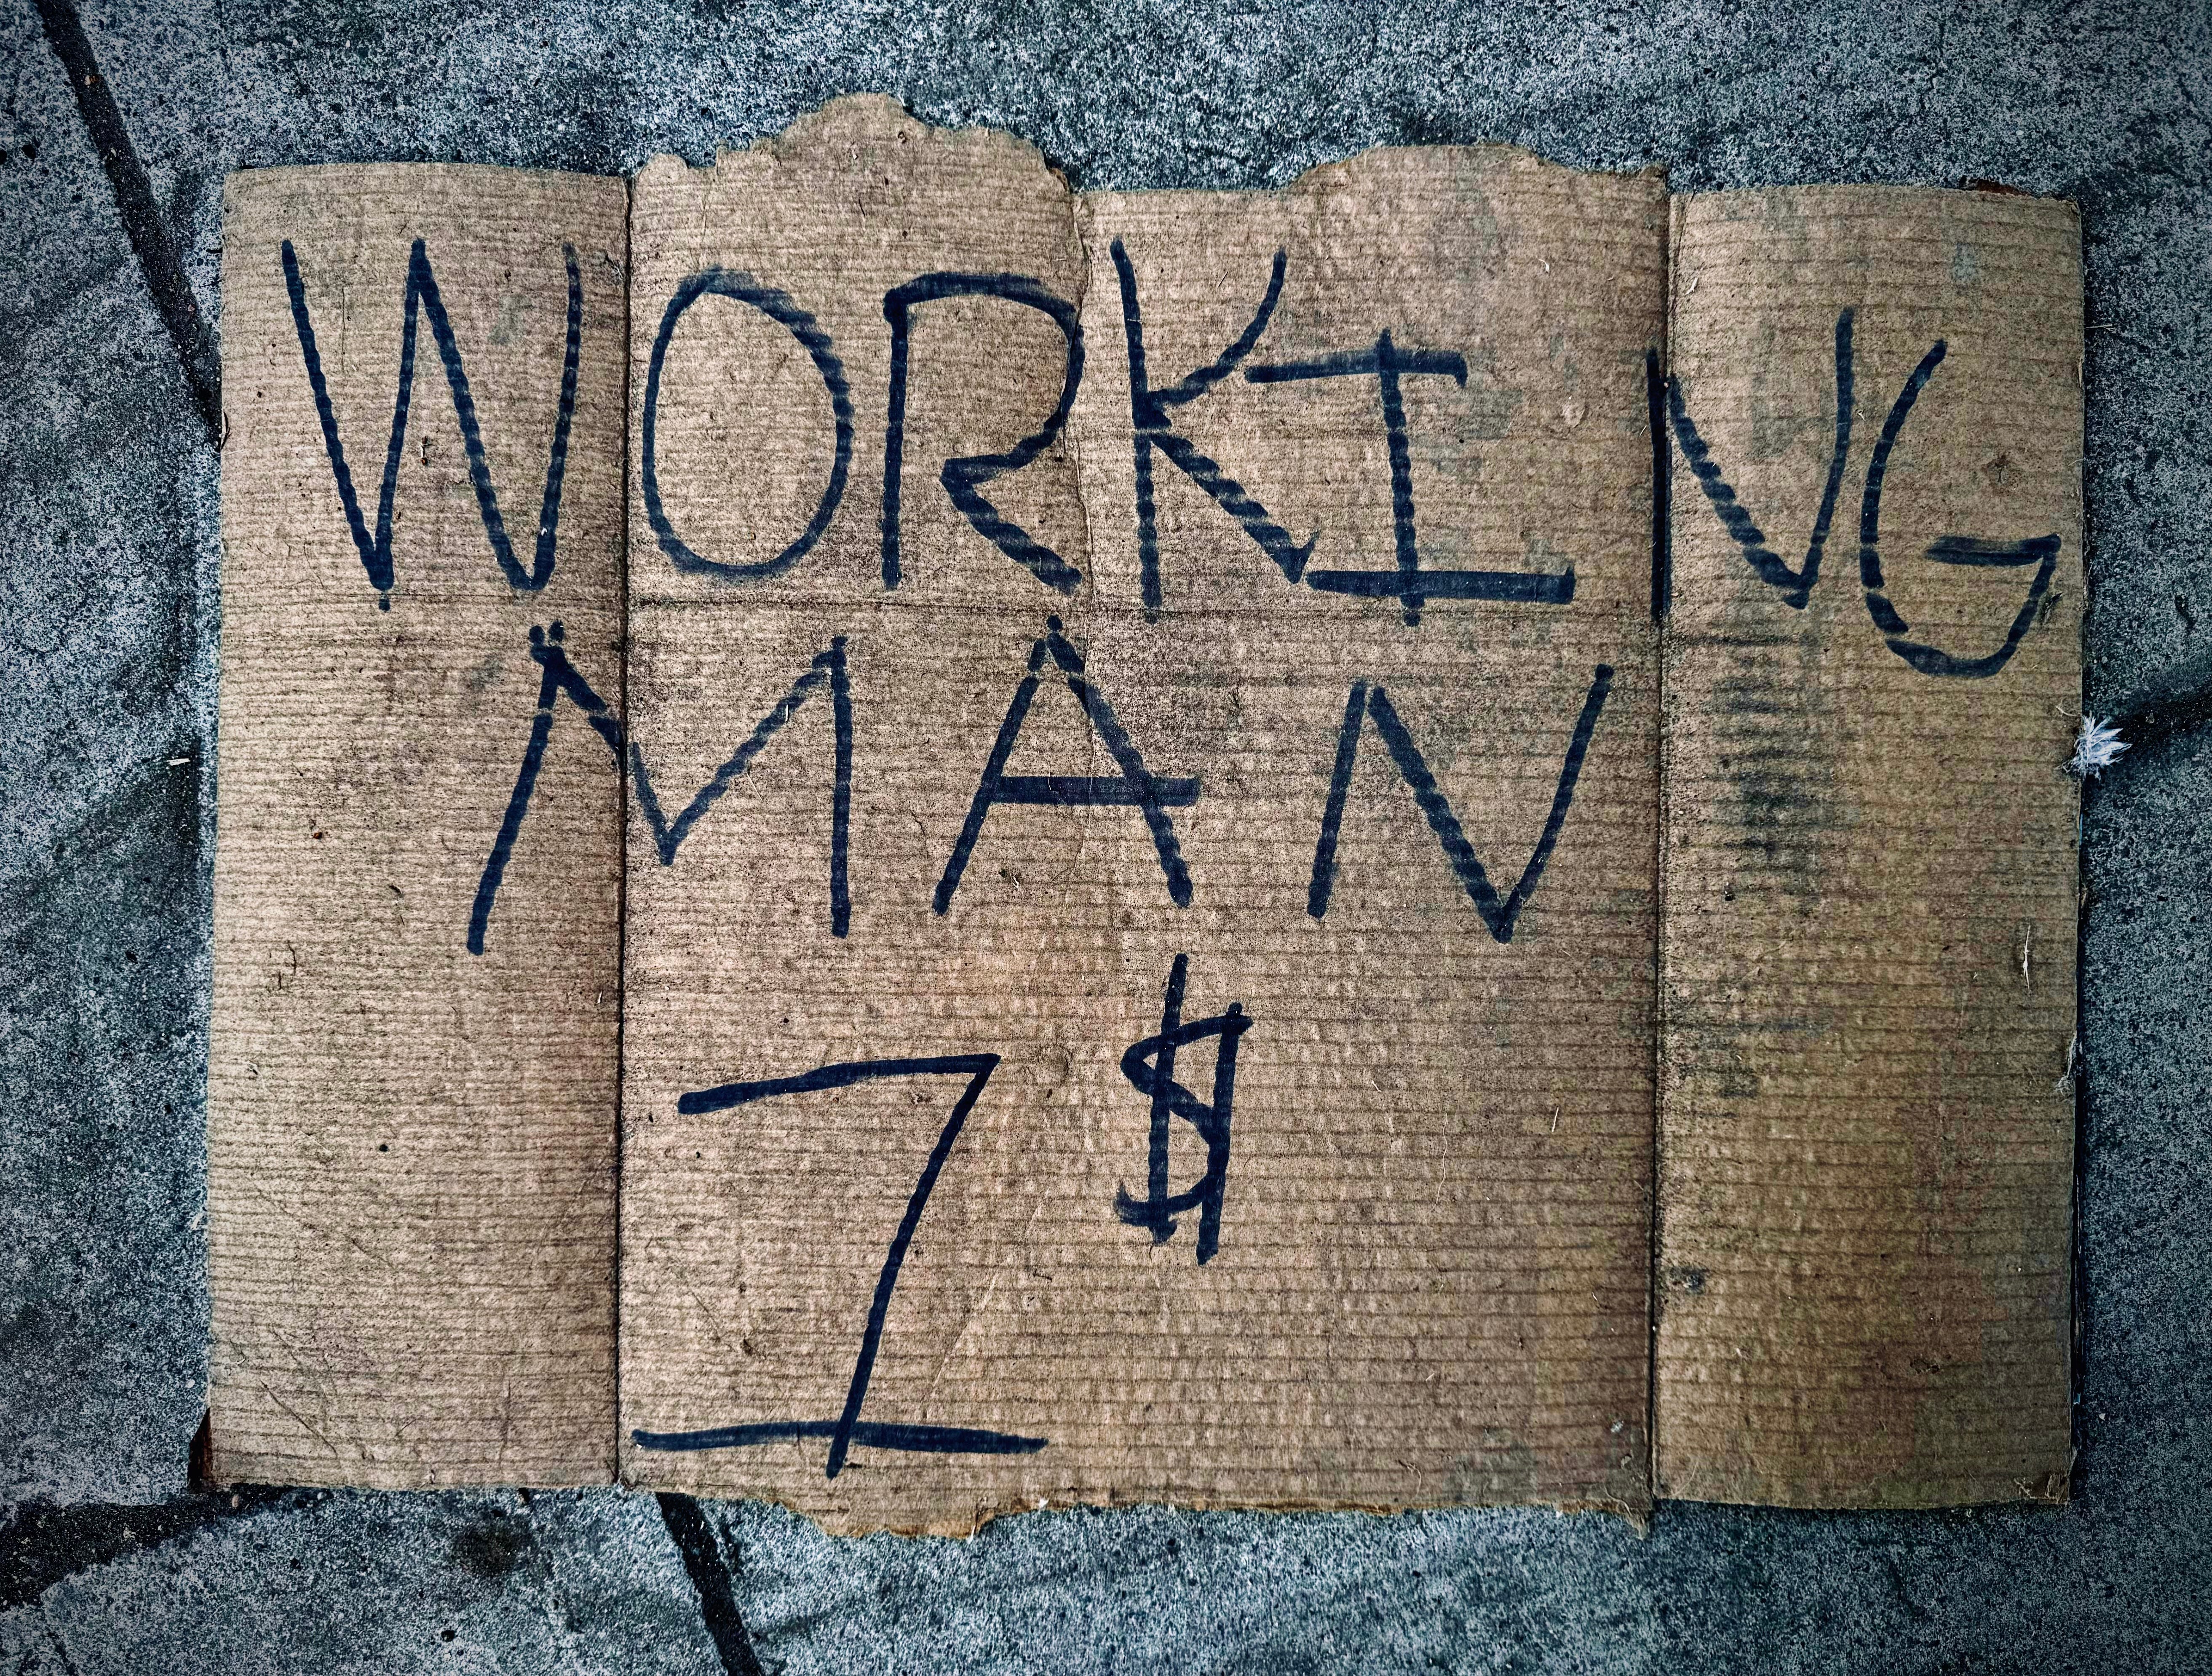 WORKING
MAN
7 $